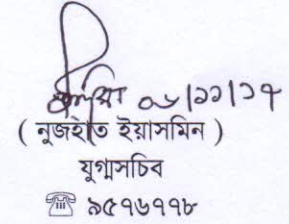 ০৮/১১/১৭
( নুজহাত ইয়াসমিন )
যুগ্মসচিব
☎ ৯৫৭৬৭৭৮